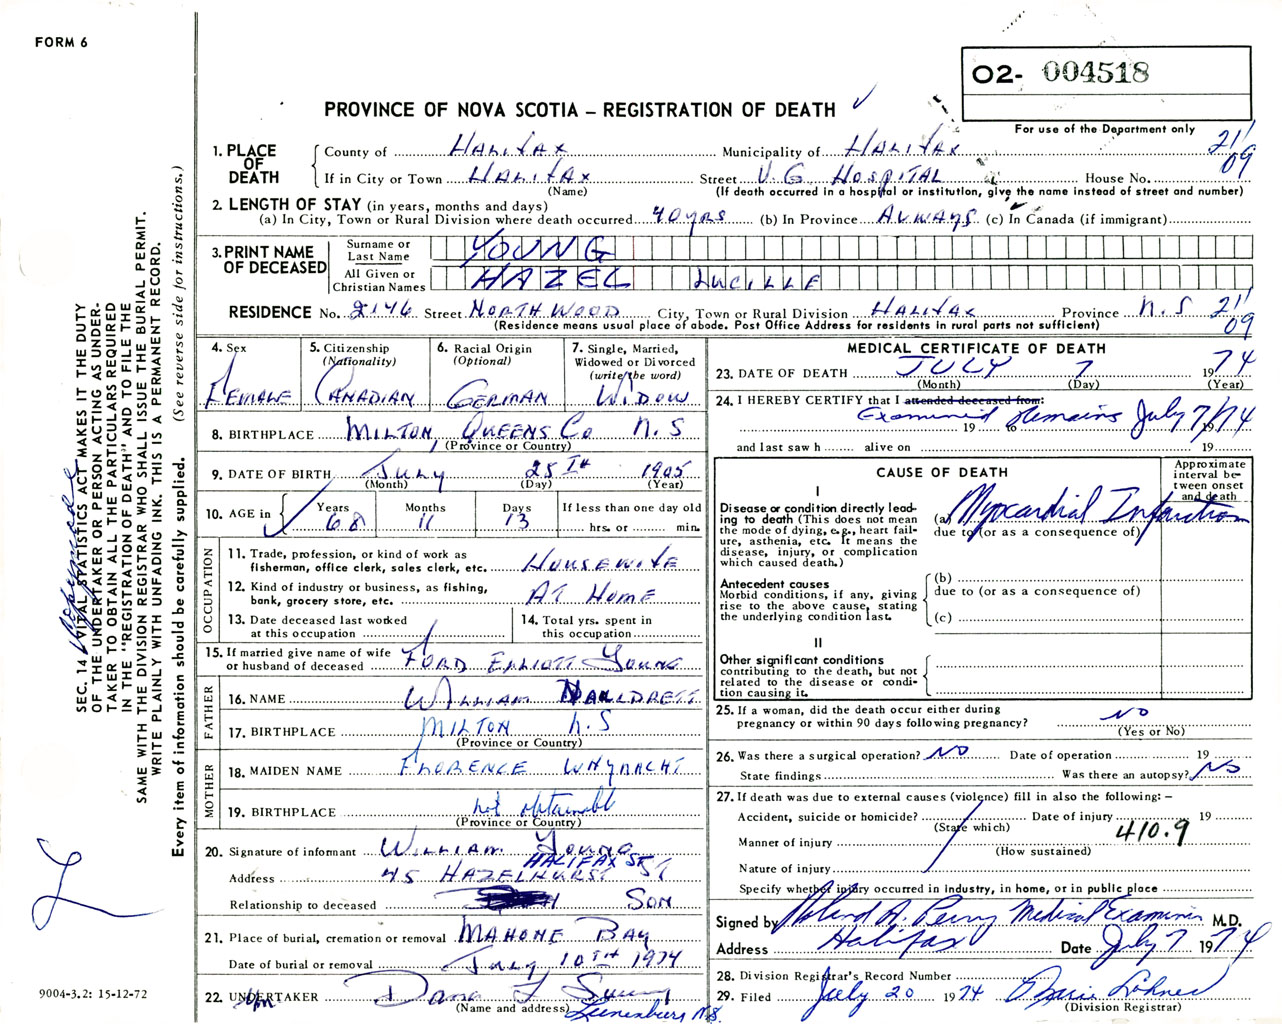 FORM 6
O2- 004518
PROVINCE OF NOVA SCOTIA – REGISTRATION OF DEATH ✓
For use of the Department only
21/09
1. PLACE OF DEATH
County of HALIFAX Municipality of HALIFAX
If in City or Town HALIFAX Street V.G. HOSPITAL House No.
(Name) (If death occurred in a hospital or institution, give the name instead of street and number)
2. LENGTH OF STAY (in years, months and days)
(a) In City, Town or Rural Division where death occurred 40 yrs (b) In Province ALWAYS (c) In Canada (if immigrant)
3. PRINT NAME OF DECEASED
Surname or Last Name YOUNG
All Given or Christian Names HAZEL LUCILLE
RESIDENCE No. 2146 Street NORTHWOOD City, Town or Rural Division HALIFAX Province N.S 21/09
(Residence means usual place of abode. Post Office Address for residents in rural parts not sufficient)
4. Sex
FEMALE
5. Citizenship (Nationality)
CANADIAN
6. Racial Origin (Optional)
GERMAN
7. Single, Married, Widowed or Divorced (write the word)
WIDOW
8. BIRTHPLACE MILTON, QUEENS CO N.S
(Province or Country)
9. DATE OF BIRTH JULY 25TH 1905
(Month) (Day) (Year)
10. AGE in Years 68 Months 11 Days 13 If less than one day old
hrs. or min.
OCCUPATION
11. Trade, profession, or kind of work as fisherman, office clerk, sales clerk, etc. HOUSEWIFE
12. Kind of industry or business, as fishing, bank, grocery store, etc. AT HOME
13. Date deceased last worked at this occupation
14. Total yrs. spent in this occupation
15. If married give name of wife or husband of deceased FORD ELLIOTT YOUNG
FATHER
16. NAME WILLIAM
17. BIRTHPLACE MILTON N.S
(Province or Country)
MOTHER
18. MAIDEN NAME FLORENCE WHYNACHT
19. BIRTHPLACE not obtainable
(Province or Country)
20. Signature of informant WILLIAM YOUNG
HALIFAX
Address 45 HAZELHURST ST
Relationship to deceased SON
21. Place of burial, cremation or removal MAHONE BAY
Date of burial or removal July, 10TH 1974
22. UNDERTAKER Dana L
(Name and address) Lunenburg N.S.
MEDICAL CERTIFICATE OF DEATH
23. DATE OF DEATH JULY 7 1974
(Month) (Day) (Year)
24. I HEREBY CERTIFY that I attended deceased from:
Examined remains July 7/74
19 to 19
and last saw h alive on 19
CAUSE OF DEATH
Approximate interval between onset and death
I
Disease or condition directly leading to death (This does not mean the mode of dying, e.g., heart failure, asthenia, etc. It means the disease, injury, or complication which caused death.)
(a) Myocardial Infarction
due to (or as a consequence of)
Antecedent causes
Morbid conditions, if any, giving rise to the above cause, stating the underlying condition last.
(b)
due to (or as a consequence of)
(c)
II
Other significant conditions contributing to the death, but not related to the disease or condition causing it.
25. If a woman, did the death occur either during pregnancy or within 90 days following pregnancy? NO
(Yes or No)
26. Was there a surgical operation? NO Date of operation 19
State findings Was there an autopsy? NO
27. If death was due to external causes (violence) fill in also the following: –
Accident, suicide or homicide? Date of injury 19
(State which)
Manner of injury 410.9
(How sustained)
Nature of injury
Specify whether injury occurred in industry, in home, or in public place
Signed by Roland A. Perry Medical Examiner M.D.
Address Halifax Date July 7 1974
28. Division Registrar's Record Number
29. Filed July 20 1974
(Division Registrar)
SEC. 14 VITAL STATISTICS ACT MAKES IT THE DUTY
OF THE UNDERTAKER OR PERSON ACTING AS UNDER-
TAKER TO OBTAIN ALL THE PARTICULARS REQUIRED
IN THE "REGISTRATION OF DEATH" AND TO FILE THE
SAME WITH THE DIVISION REGISTRAR WHO SHALL ISSUE THE BURIAL PERMIT.
WRITE PLAINLY WITH UNFADING INK. THIS IS A PERMANENT RECORD.
Every item of information should be carefully supplied. (See reverse side for instructions.)
9004-3.2: 15-12-72